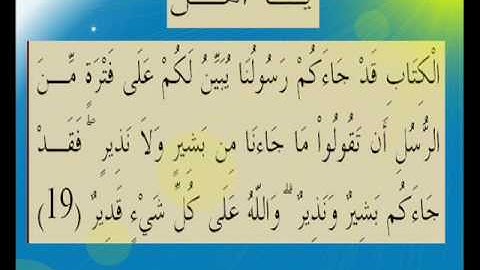 يَا أَهْلَ
الْكِتَابِ قَدْ جَاءَكُمْ رَسُولُنَا يُبَيِّنُ لَكُمْ عَلَى فَتْرَةٍ مِّنَ
الرُّسُلِ أَن تَقُولُواْ مَا جَاءَنَا مِن بَشِيرٍ وَلاَ نَذِيرٍ ۖ فَقَدْ
جَاءَكُم بَشِيرٌ وَنَذِيرٌ ۗ وَاللّهُ عَلَى كُلِّ شَيْءٍ قَدِيرٌ (19)